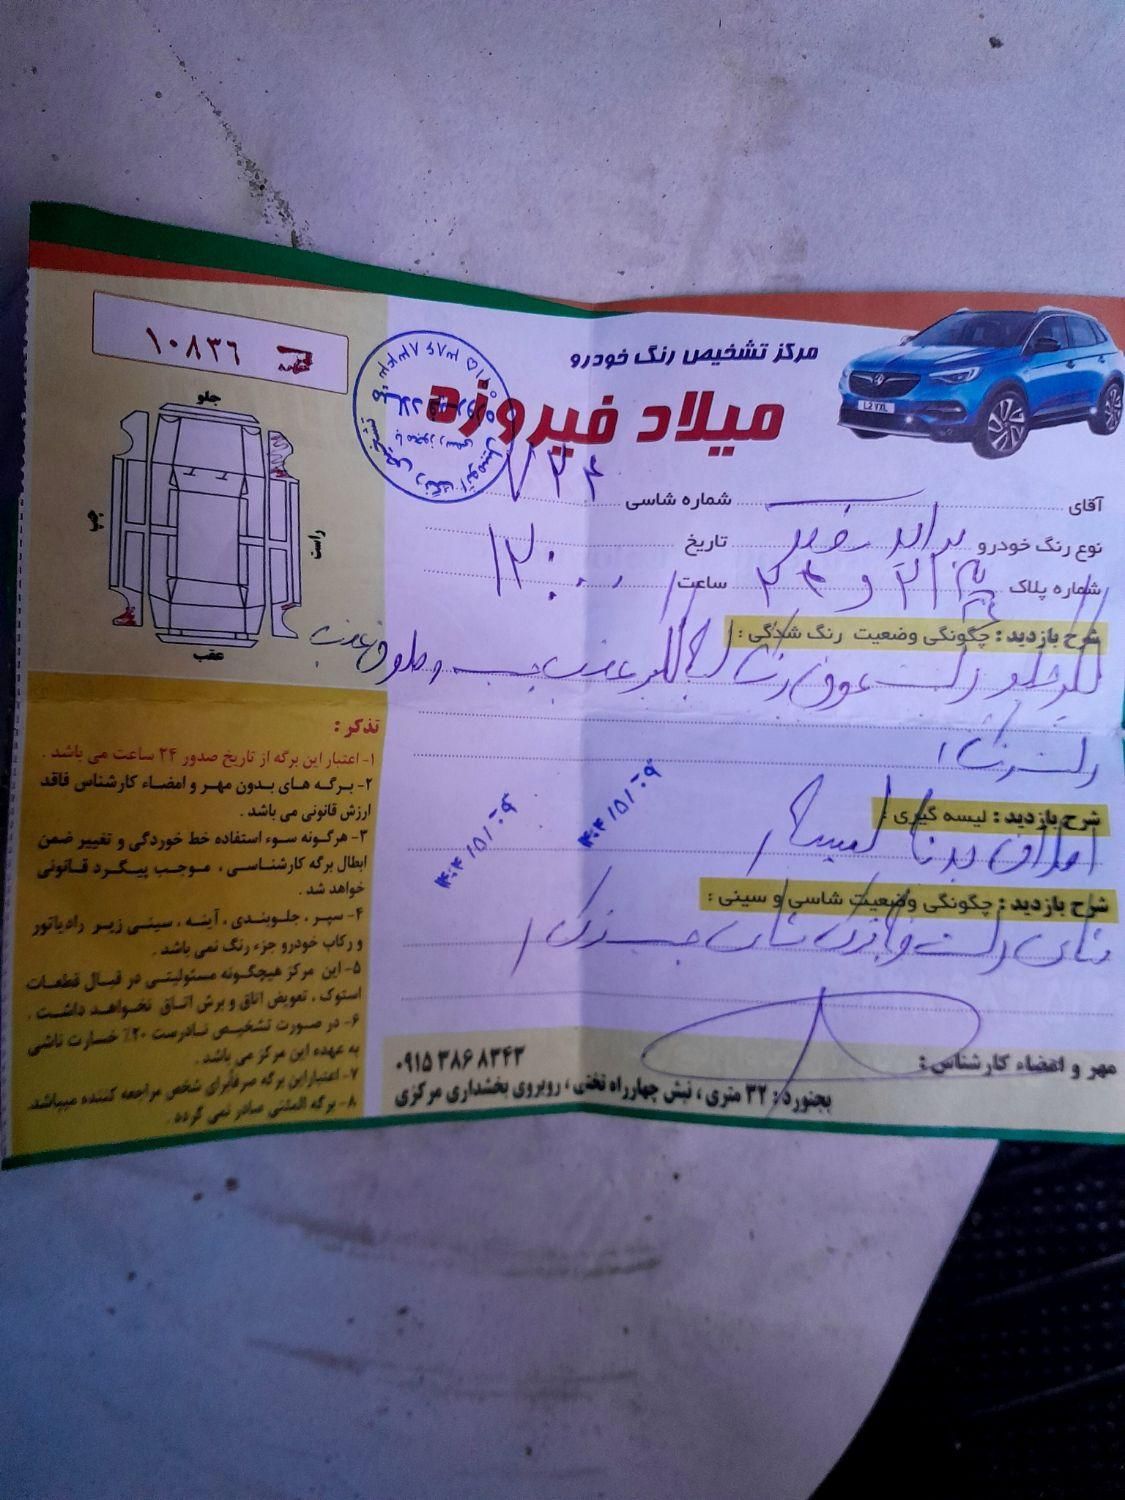 مرکز تشخیص رنگ خودرو
میلاد فیروزه
۱۰۸۳۶
جلو
چپ
راست
عقب
L2 YXL
آقای
شماره شاسی ۷۲۴
نوع رنگ خودرو پراید سفید
تاریخ
شماره پلاک
ساعت ۱۲:۰۰
شرح بازدید : چگونگی وضعیت رنگ شدگی :
گلگیر جلو راست تعویض رنگ گلگیر عقب چپ و جلو عقب
راست رنگ
شرح بازدید : لیسه گیری :
اطراف بدنه لیسه
شرح بازدید : چگونگی وضعیت شاسی و سینی :
شاسی راست شاسی چپ
۱۴۰۴/۵/۰۹
۱۴۰۴/۵/۰۹
مهر و امضاء کارشناس :
۰۹۱۵ ۳۸۶ ۸۳۴۳
بجنورد : ۳۲ متری ، نبش چهارراه تختی ، روبروی بخشداری مرکزی
تذکر :
۱- اعتبار این برگه از تاریخ صدور ۲۴ ساعت می باشد .
۲- برگه های بدون مهر و امضاء کارشناس فاقد
ارزش قانونی می باشد .
۳- هرگونه سوء استفاده خط خوردگی و تغییر ضمن
ابطال برگه کارشناسی ، موجب پیگرد قانونی
خواهد شد .
۴- سپر ، جلوبندی ، آینه ، سینی زیر رادیاتور
و رکاب خودرو جزء رنگ نمی باشد .
۵- این مرکز هیچگونه مسئولیتی در قبال قطعات
استوک ، تعویض اتاق و برش اتاق نخواهد داشت .
۶- در صورت تشخیص نادرست ۲۰٪ خسارت ناشی
به عهده این مرکز می باشد .
۷- اعتبار این برگه صرفاً برای شخص مراجعه کننده میباشد.
۸- برگه المثنی صادر نمی گردد .